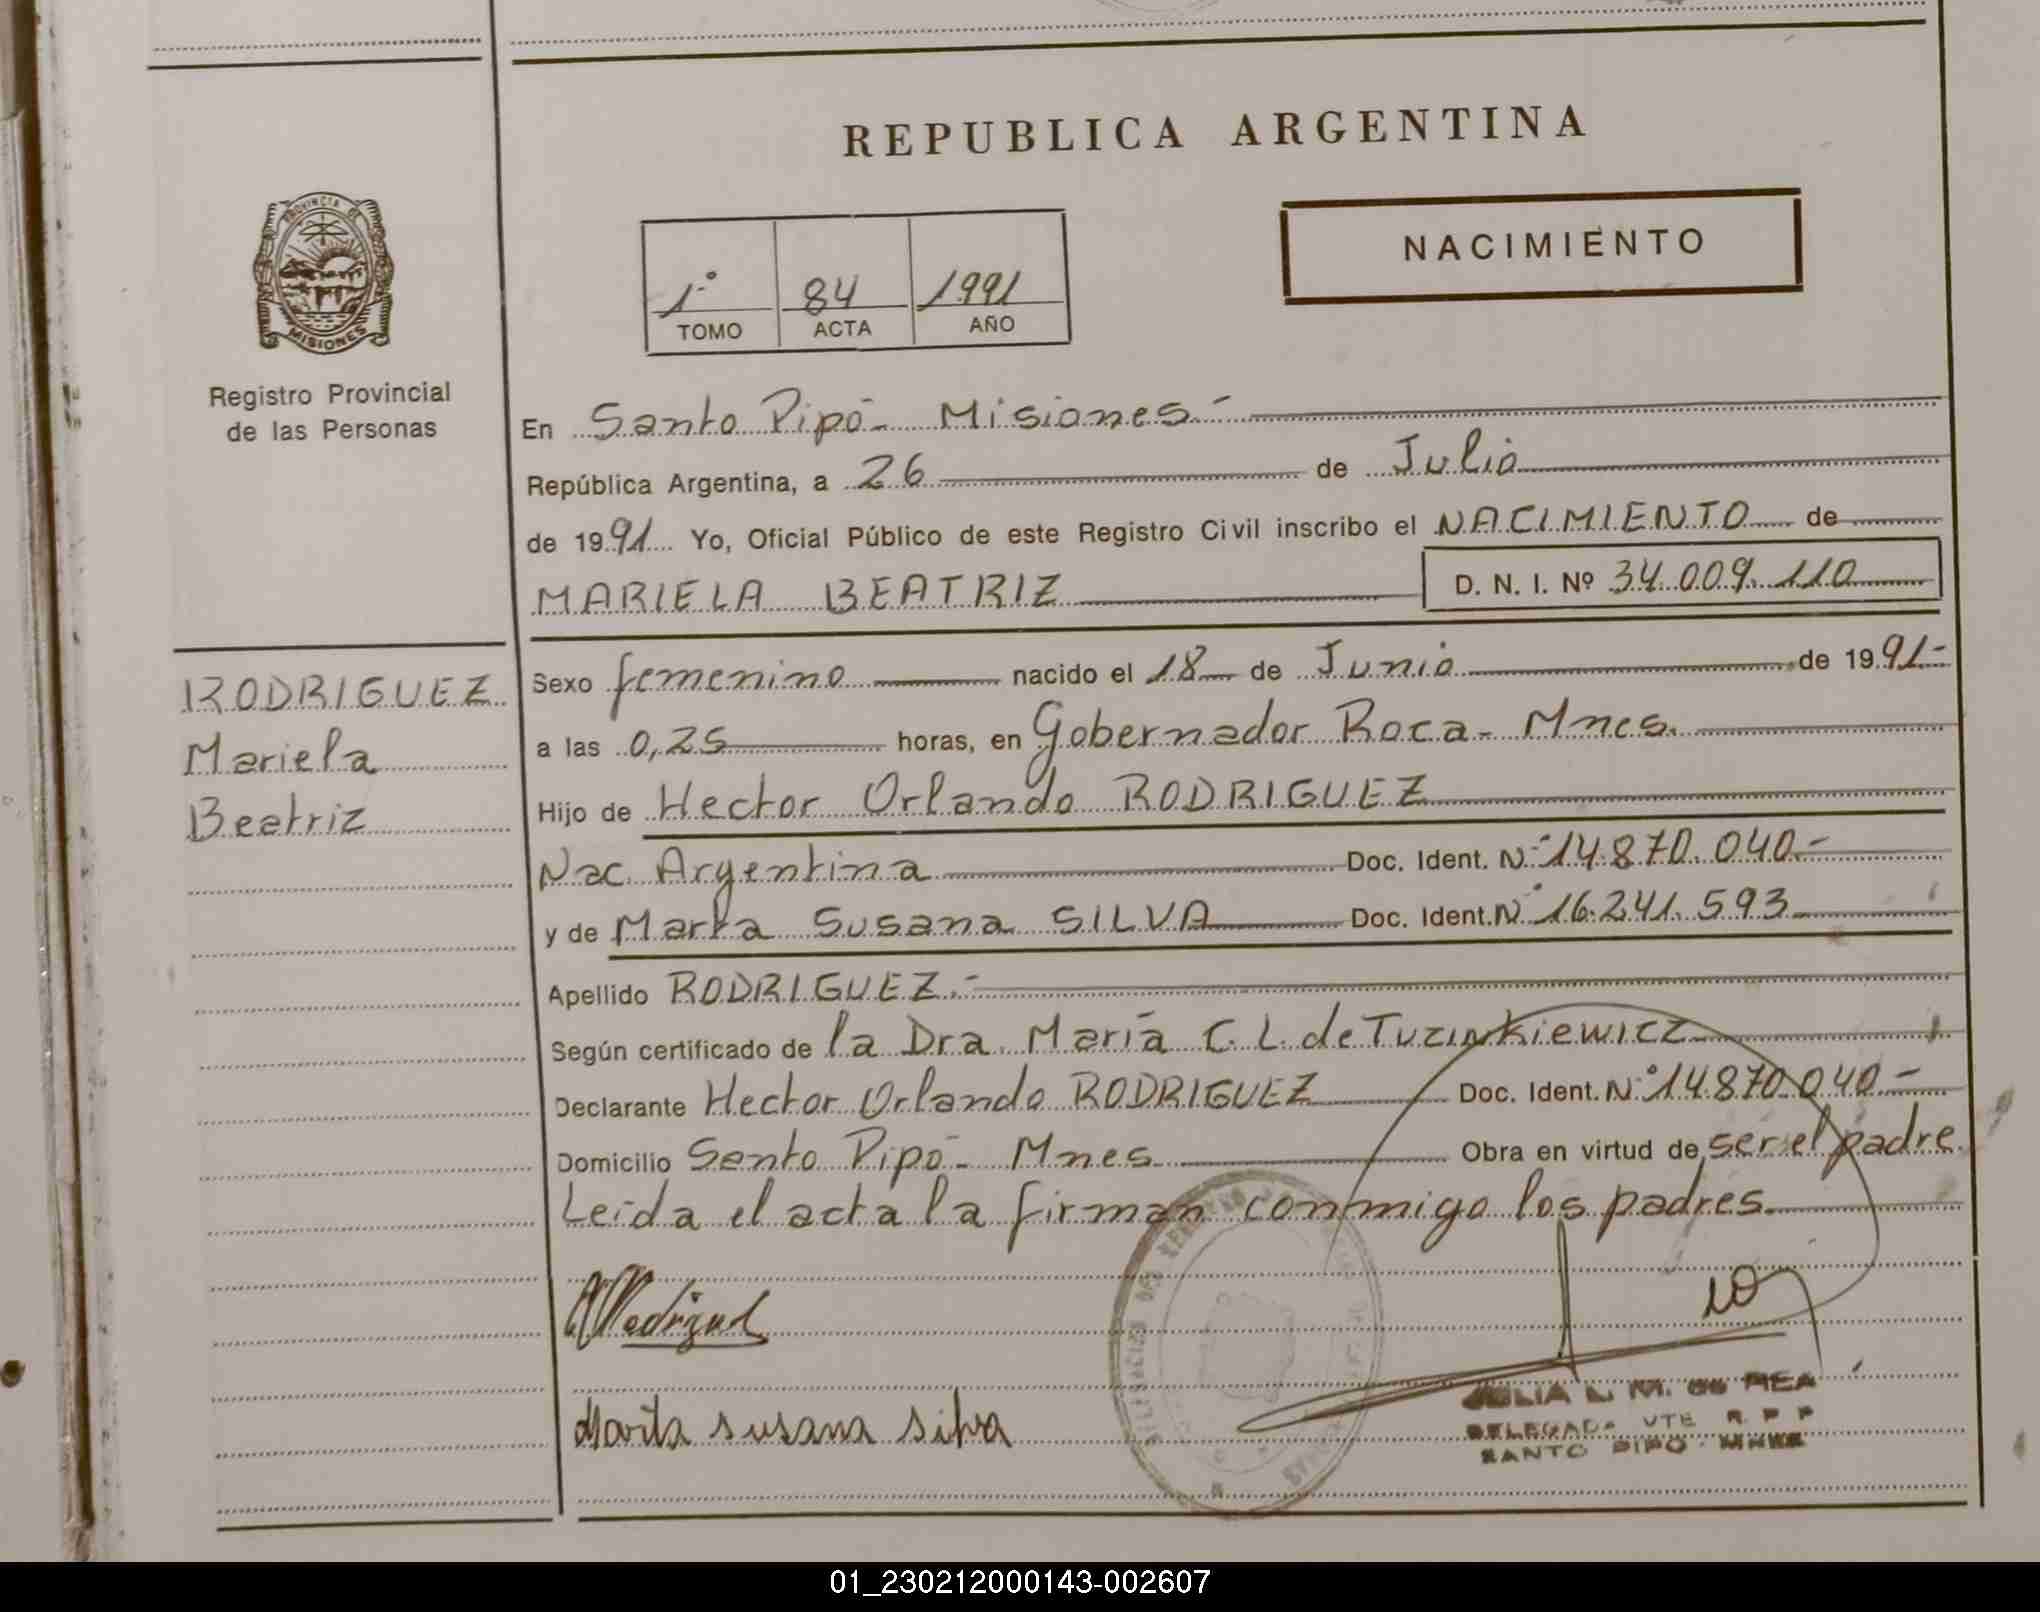 REPUBLICA ARGENTINA
NACIMIENTO
1º 84 1991
TOMO ACTA AÑO
PROVINCIA DE
MISIONES
Registro Provincial
de las Personas
En Santo Pipó - Misiones -
República Argentina, a 26 de Julio
de 1991 Yo, Oficial Público de este Registro Civil inscribo el NACIMIENTO de
MARIELA BEATRIZ D. N. I. Nº 34.009.110
RODRIGUEZ
Mariela
Beatriz
Sexo femenino nacido el 18 de Junio de 1991-
a las 0,25 horas, en Gobernador Roca - Mnes.
Hijo de Hector Orlando RODRIGUEZ
Nac. Argentina Doc. Ident. Nº 14.870.040.-
y de Marta Susana SILVA Doc. Ident. Nº 16.241.593
Apellido RODRIGUEZ.-
Según certificado de la Dra. María C. L. de Tuzinkiewicz
Declarante Hector Orlando RODRIGUEZ Doc. Ident. Nº 14.870.040-
Domicilio Santo Pipó - Mnes Obra en virtud de ser el padre.
Leída el acta la firman conmigo los padres.
Marta Susana Silva
JULIA L. M. de REA
DELEGADA VTE R. P. P
SANTO PIPO - MNES
01_230212000143-002607